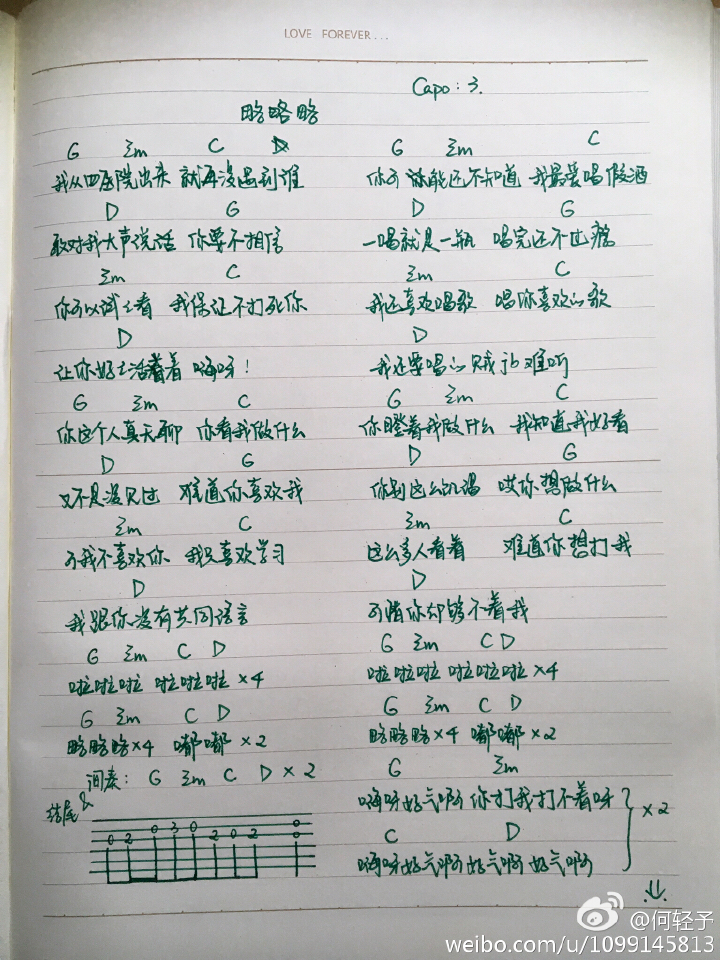 LOVE FOREVER...
Capo：3.
略略略
G Em C D
我从四医院出来 就再没遇到谁
D G
敢对我大声说话 你要不相信
Em C
你可以试士看 我保证不打死你
D
让你好士活着着 嗨呀！
G Em C
你这个人真无聊 你看我做什么
D G
又不是没见过 难道你喜欢我
Em C
可我不喜欢你 我只喜欢学习
D
我跟你没有共同语言
G Em C D
啦啦啦啦 啦啦啦啦 ×4
G Em C D
略略略×4 嘟嘟 ×2
间奏：G Em C D ×2
结尾&
0 2 0 3 0 2 0 2 0 0
G Em C
你可 你能还不知道 我最爱唱假酒
D G
一唱就是一瓶 唱完还不过瘾
Em C
我还喜欢唱歌 唱你喜欢的歌
D
我还要唱的贼jb难听
G Em C
你瞪着我做什么 我知道我好看
D G
你别这么饥渴 哎你想做什么
Em C
这么多人看着 难道你想打我
D
可惜你却够不着我
G Em C D
啦啦啦啦 啦啦啦啦 ×4
G Em C D
略略略×4 嘟嘟×2
G Em
嗨呀好气啊 你打我打不着呀
×2
C D
嗨呀好气啊好气啊 好气啊
@何轻子
weibo.com/u/1099145813